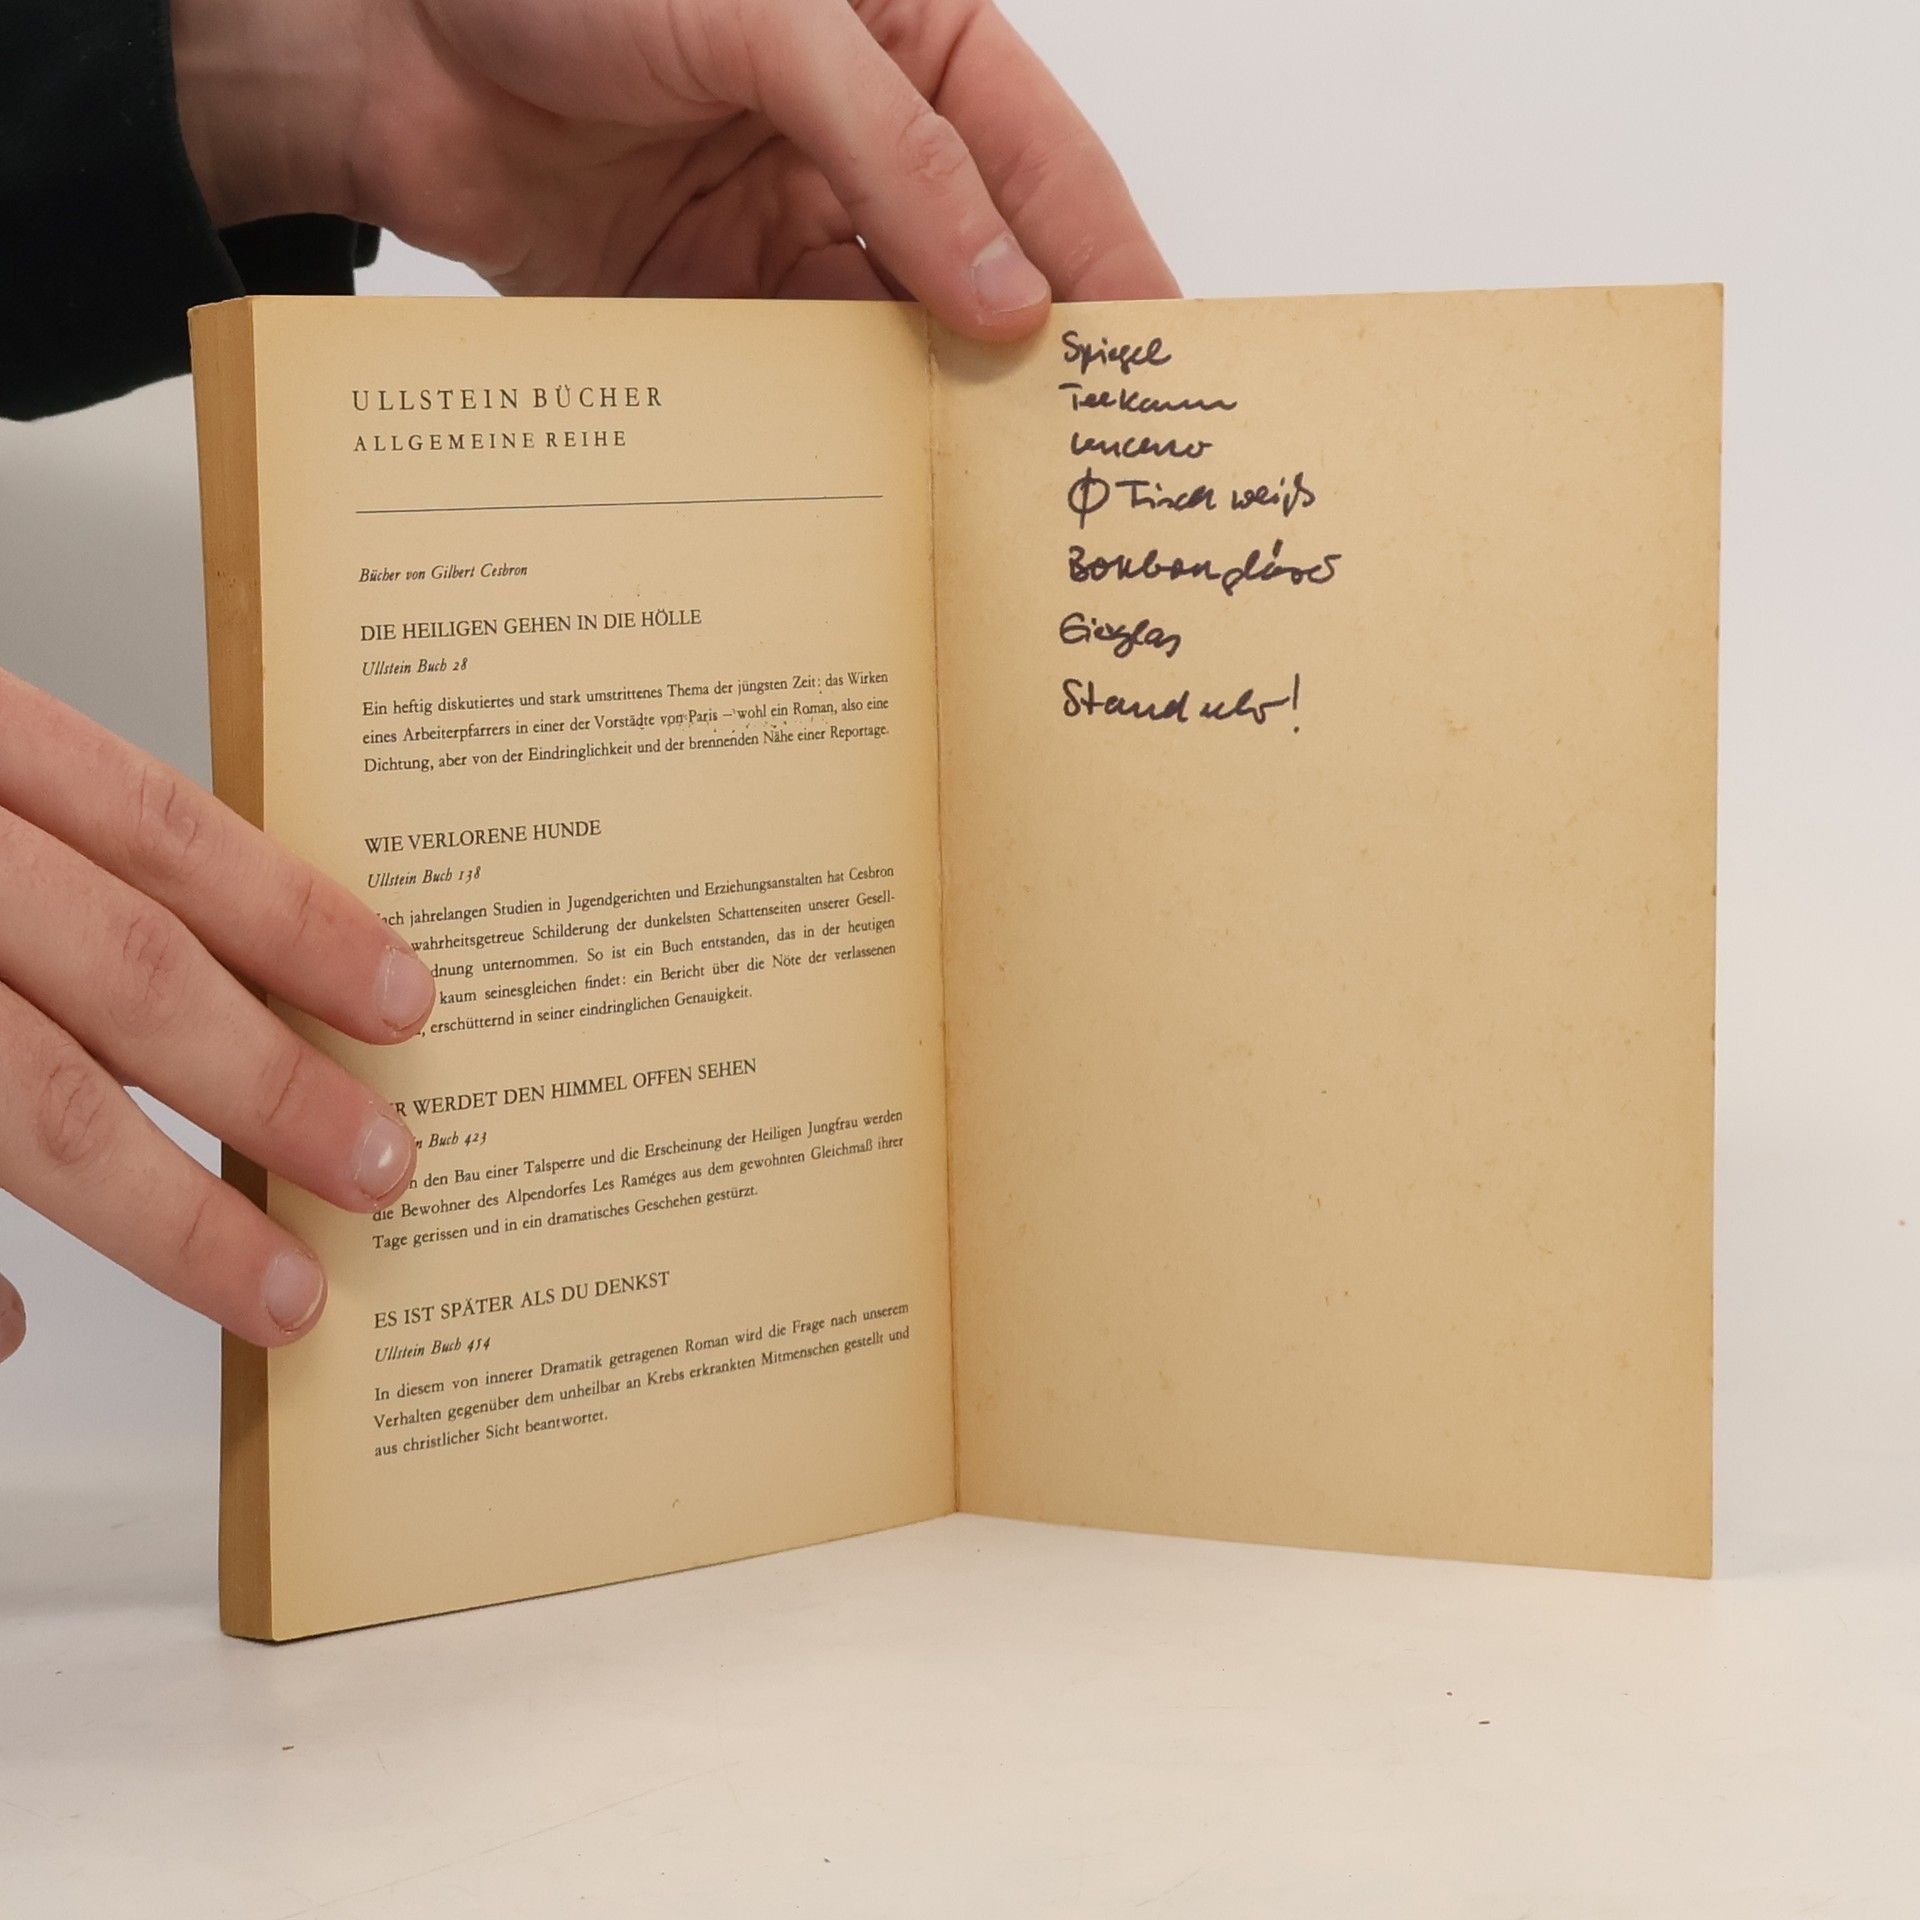 ULLSTEIN BÜCHER
ALLGEMEINE REIHE
Bücher von Gilbert Cesbron
DIE HEILIGEN GEHEN IN DIE HÖLLE
Ullstein Buch 28
Ein heftig diskutiertes und stark umstrittenes Thema der jüngsten Zeit: das Wirken
eines Arbeiterpfarrers in einer der Vorstädte von Paris – wohl ein Roman, also eine
Dichtung, aber von der Eindringlichkeit und der brennenden Nähe einer Reportage.
WIE VERLORENE HUNDE
Ullstein Buch 138
ach jahrelangen Studien in Jugendgerichten und Erziehungsanstalten hat Cesbron
wahrheitsgetreue Schilderung der dunkelsten Schattenseiten unserer Gesell-
dnung unternommen. So ist ein Buch entstanden, das in der heutigen
kaum seinesgleichen findet: ein Bericht über die Nöte der verlassenen
, erschütternd in seiner eindringlichen Genauigkeit.
R WERDET DEN HIMMEL OFFEN SEHEN
n Buch 423
n den Bau einer Talsperre und die Erscheinung der Heiligen Jungfrau werden
die Bewohner des Alpendorfes Les Raméges aus dem gewohnten Gleichmaß ihrer
Tage gerissen und in ein dramatisches Geschehen gestürzt.
ES IST SPÄTER ALS DU DENKST
Ullstein Buch 454
In diesem von innerer Dramatik getragenen Roman wird die Frage nach unserem
Verhalten gegenüber dem unheilbar an Krebs erkrankten Mitmenschen gestellt und
aus christlicher Sicht beantwortet.
Spiegel
Teekanne
Tisch weiß
Bonbongläser
Standuhr!